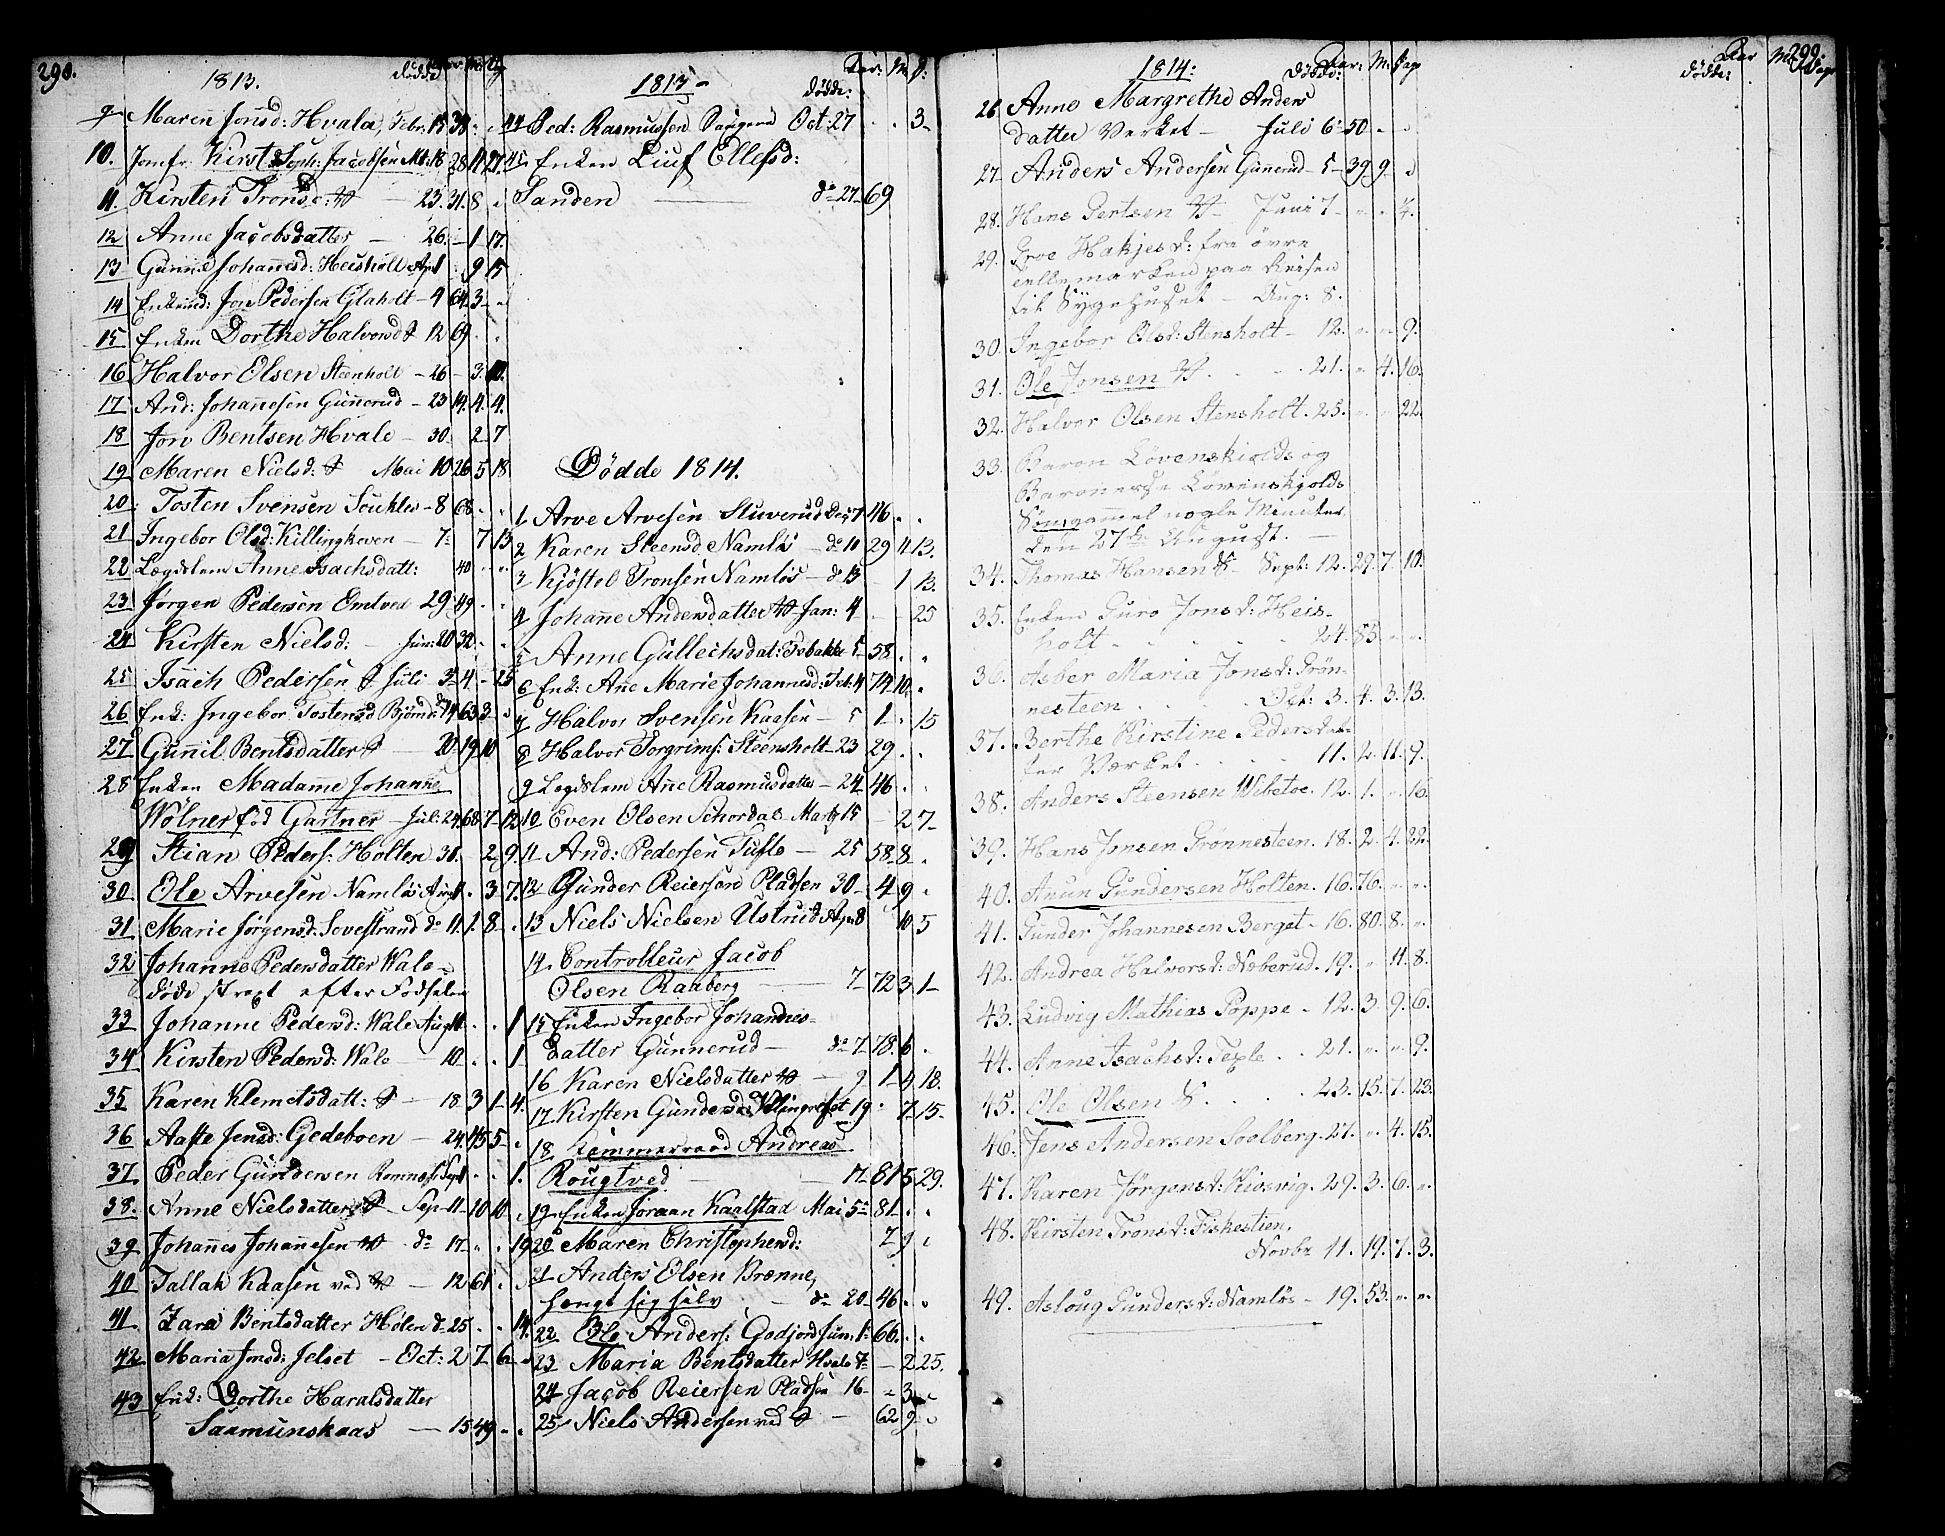 298.
1813.
dödde
9 Maren Jonsd: Hvala Febr: 15 38 " "
10. Jomfr: Kirst: Soph: Jacobsen Mts: 18 28 11 27
11. Kirsten Tronsd: 23. 31. 8 "
12 Anne Jacobsdatter — 26. — 1 17.
13 Gunnil Johannesd: Heisholt Apr 1 " 9 15
14 Enkemd: Jon Pedersen Glaholt — 4 64 3 "
15 Enken Dorthe Halvorsd 12 69 " "
16 Halvor Olsen Steenholt — 26 — 3. 10.
17 And: Johannesen Gunnerud — 23 14. 4. 4.
18 Jon Bentsen Hvale — 30. 2 7
19 Maren Nielsd: Mai 10 26 5 18
20: Tosten Svensen — 8 68 " "
21 Ingebor Olsd: Killingkoven — 7 7 13
22 Lægdslem Anne Isachsdatt: 40 " "
23 Jørgen Pedersen Omtved 29 49 " "
24 Kirsten Nielsd: — Jun: 20 32 " "
25 Isach Pedersen Juli 3 4 — 25
26 Enk: Ingebor Tostensd 14 63 3 "
27 Gunil Bentsdatter — 20 19 10
28 Enken Madamme Johanne
Wölner föd Gartner — Jul: 24 68 7 — 12
29 Stian Peders: Holten 31. 2 9.
30. Ole Arvesen Namløs 1. " 3 7.
31 Marie Jörgensd: Sovestrand do 11. 1. 8 "
32 Johanne Pedersdatter Wale
döde strax efter Fødselen
33 Johanne Pedersd: Wale Aug 11 " " 1
34 Kirsten Pedersd: Wale — 10. " " 1.
35 Karen Klemetsdatt: — 18 3 1 4.
36 Aaste Jensd: Gedeboen — 24 45 5 "
37. Peder Gundersen Sept " " 1.
38. Anne Nielsdatter Sep — 11 — 10 10. "
39 Johannes Johannesen do 17 " " 19
40 Tallak Kaasen ved — 12 61 "
41 Zara Bentsdatter Holen do 25 " " 14.
42 Maria Jonsd: Jelset — Oct: 2 7 6 "
43 Enk: Dorthe Haralsdatter
Saamunskaas — 15 49 " "
1813 —
dödde: Aar: M: D:
44 Ped: Rasmussen Oct: 27 " " 3
45 Enken Liuf Ellefsd:
Sanden — do 27 69
Dödde 1814.
1 Arve Arvesen Stuverud Dec 7 46 " "
2 Karen Steensd: Namløs — do 11 29 11 13.
3 Kjöstel Tronsen Namløs — do 13 1 13.
4 Johanne Andersdatter Jan: 4 — — 25
5 Anne Gullechsdat: 5 58 " "
6 Enk: Ane Marie Johannesd: Feb: 4 74 10 "
7 Halvor Svensen Kaasen — 5 1 " 15
8 Halvor Torgrims: Steensholt — 23 29 " "
9 Lægdslem Ane Rasmusdatter — 24 46 " "
10 Even Olsen Martz 15 — 2 7
11 And: Pedersen Tufte — 25 58 8 "
12 Gunder Reiersen Pladsen 30 — 4 9 "
13 Niels Nielsen Ustrud Apr 8 10 5
14. Controlleur Jacob
Olsen Raaberg — 7 — 72 3 1
15 Enken Ingebor Johannes-
datter Gunnerud — do 7 78 6 "
16 Karen Nielsdatter — 9 1 4 18.
17. Kirsten Gundersd: 19 " 7 15
18 Kammerraad Andreas
Rougtved — 17 81 5 29.
19 Enken Joraan Kaalstad Mai 5 81 " "
20 Maren Christophersd: 7 9 "
21 Anders Olsen Brænne,
hængt sig sælv — do 20 46 " "
22 Ole Anders: Godjord Jun: 1 66 " "
23 Maria Bentsdatter Hvale 7 — 2 25.
24 Jacob Reiersen Pladsen 16 — " 3 "
25 Niels Andersen ved — 62 9 "
1814:
dödde: Aar: M: Dage
26 Anne Margrethe Anders
datter Verket — Juli 6 50 " "
27 Anders Andersen Gunnerud — 5 — 39 9 "
28. Hans Gertsen — Juni 7 — " " 1/4.
29. Hakjesd: fra övre
Tellemarken paa Reisen
til Sygehuset — Aug: 8.
30. Ingebor Olsd: Stensholt — 12. " " 9.
31. Ole Jonsen . . . 21. " 4. 16.
32. Halvor Olsen Stensholt. 25. " " 22.
33. Baron Lövenskiolds og
Baronesse Lövenskjolds
Sön gammel nogle Minuter
den 27de August. —
34. Thomas Hansen — Sept: 12. 29. 7. 10.
35. Enken Guro Jonsd: Heis-
holt . . . 24. 85. " "
36. Asber Maria Jonsd: Grön-
nesteen . . . Oct: 3. 4. 3. 13.
37. Berthe Kirstine Pedersdat-
ter Værket . . . 11. 2. 11. 9.
38. Anders Steensen Wibetoe. 12. 1. " 16.
39. Hans Jonsen Grönnesteen. 18. 2. 4. 22.
40. Avun Gundersen Holten. 16. 76. " "
41. Gunder Johannesen Berget — 16. 80. 8. "
42. Andrea Halvorsd: Næberud. 19. " 11. 8.
43. Ludvig Mathias Poppe — 12. 3. 9. 6.
44. Anne Isachsd: Texle . . 21. " " 9.
45. Ole Olsen . . . 23. 15. 7. 23.
46. Jens Andersen Soelberg. 27. " 4. 15.
47. Karen Jörgensd: Kivsvig. 29. 3. 6. "
48. Kirsten Tronsd: Fiskestien,
Novbr 11. 19. 7. 3.
49. Asloug Gundersd: Namløs — 19. 53. " "
299.
dödde: Aar M: Dage